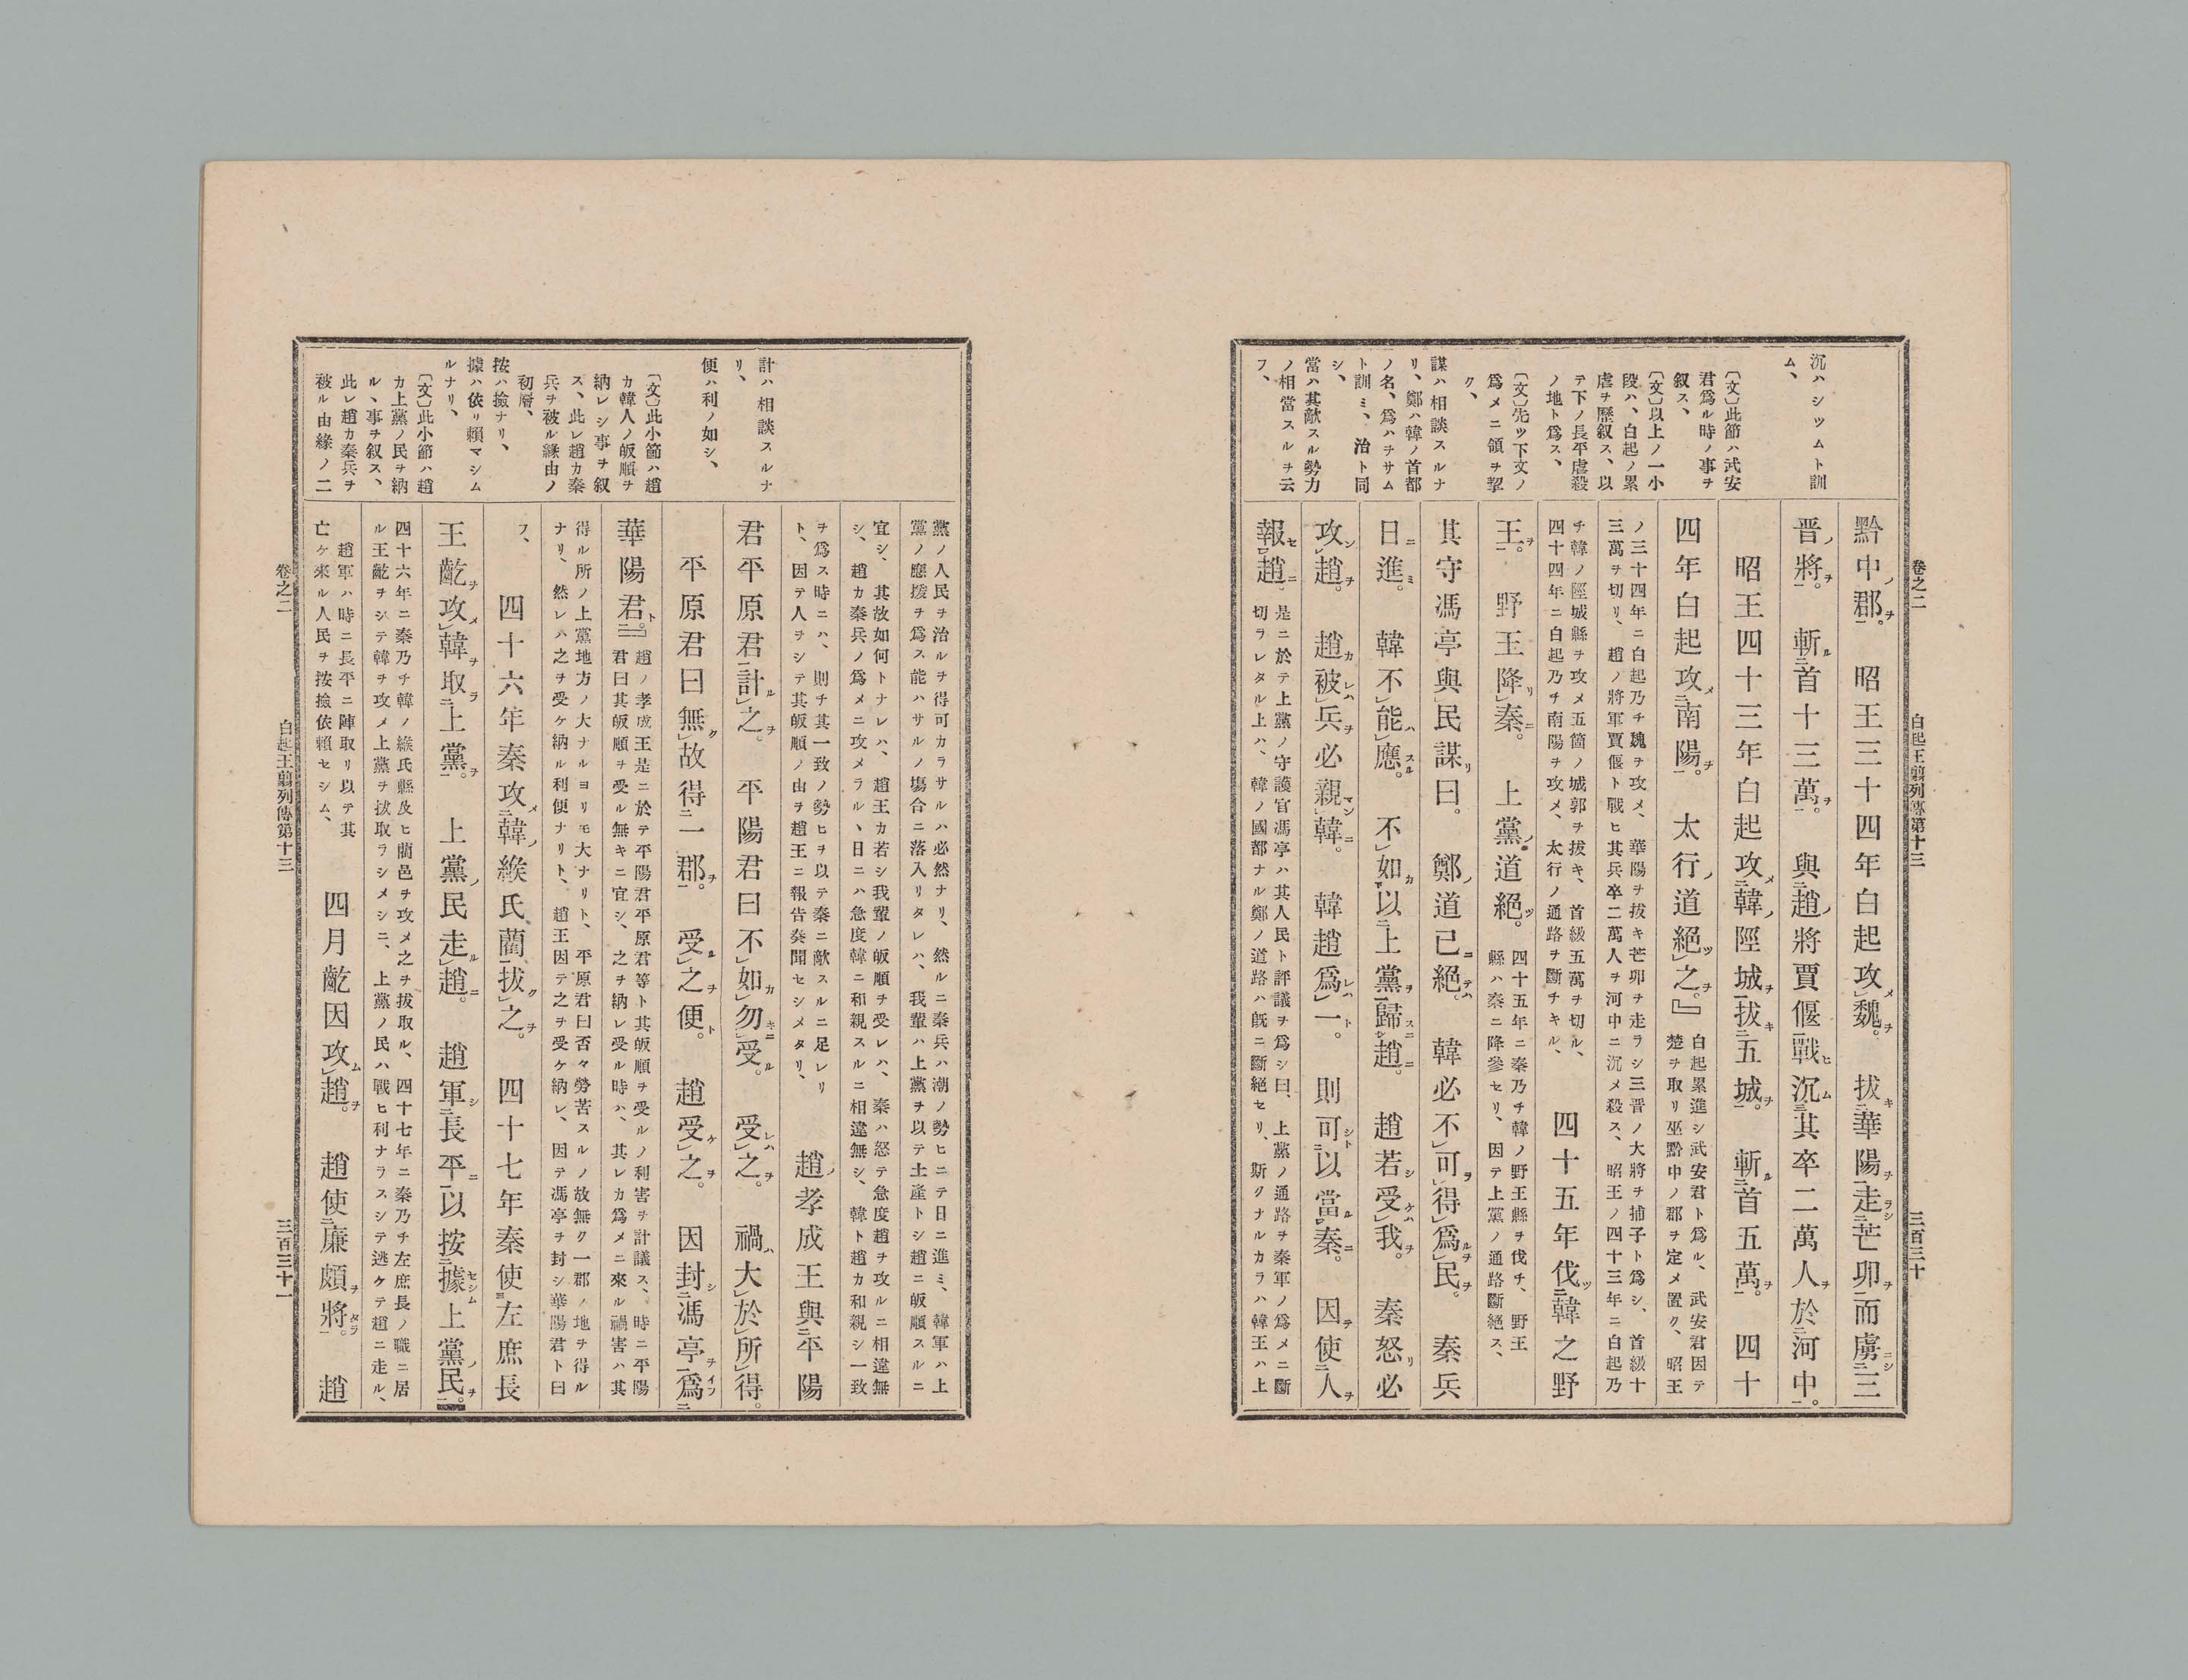 卷之二 白起王翦列傳第十三 三百三十
沉ハシツムト訓
ム、
〔文〕此節ハ武安
君爲ル時ノ事ヲ
叙ス、
〔文〕以上ノ一小
段ハ、白起ノ累
虐ヲ歷叙ス、以
テ下ノ長平虐殺
ノ地ト爲ス、
〔文〕先ツ下文ノ
爲メニ領ヲ挈
ク、
謀ハ相談スルナ
リ、鄭ハ韓ノ首都
ノ名、爲ハヲサム
ト訓ミ、治ト同
シ、
當ハ其敵スル勢力
ノ相當スルヲ云
フ、
黔中郡。昭王三十四年白起攻魏。拔華陽走芒卯而虜三
晋將。斬首十三萬。與趙將賈偃戰沉其卒二萬人於河中。
昭王四十三年白起攻韓陘城拔五城。斬首五萬。四十
四年白起攻南陽。太行道絕之。』
白起累進シ武安君ト爲ル、武安君因テ
楚ヲ取リ巫黔中ノ郡ヲ定メ置ク、昭王
ノ三十四年ニ白起乃チ魏ヲ攻メ、華陽ヲ拔キ芒卯ヲ走ラシ三晋ノ大將ヲ捕子ト爲シ、首級十
三萬ヲ切リ、趙ノ將軍賈偃ト戰ヒ其兵卒二萬人ヲ河中ニ沉メ殺ス、昭王ノ四十三年ニ白起乃
チ韓ノ陘城縣ヲ攻メ五箇ノ城郭ヲ拔キ、首級五萬ヲ切ル、
四十四年ニ白起乃チ南陽ヲ攻メ、太行ノ通路ヲ斷チキル、
四十五年伐韓之野
王。野王降秦。上黨道絕。
四十五年ニ秦乃チ韓ノ野王縣ヲ伐チ、野王
縣ハ秦ニ降參セリ、因テ上黨ノ通路斷絕ス、
其守馮亭與民謀曰。鄭道已絕。韓必不可得爲民。秦兵
日進。韓不能應。不如以上黨歸趙。趙若受我。秦怒必
攻趙。趙被兵必親韓。韓趙爲一。則可以當秦。因使人
報趙。
是ニ於テ上黨ノ守護官馮亭ハ其人民ト評議ヲ爲シ曰、上黨ノ通路ヲ秦軍ノ爲メニ斷
切ラレタル上ハ、韓ノ國都ナル鄭ノ道路ハ旣ニ斷絕セリ、斯クナルカラハ韓王ハ上
計ハ相談スルナ
リ、
便ハ利ノ如シ、
〔文〕此小節ハ趙
カ韓人ノ皈順ヲ
納レシ事ヲ叙
ス、此レ趙カ秦
兵ヲ被ル緣由ノ
初層、
按ハ撿ナリ、
據ハ依リ賴マシム
ルナリ、
〔文〕此小節ハ趙
カ上黨ノ民ヲ納
ルヽ事ヲ叙ス、
此レ趙カ秦兵ヲ
被ル由緣ノ二
黨ノ人民ヲ治ルヲ得可カラサルハ必然ナリ、然ルニ秦兵ハ潮ノ勢ヒニテ日ニ進ミ、韓軍ハ上
黨ノ應援ヲ爲ス能ハサルノ塲合ニ落入リタレハ、我輩ハ上黨ヲ以テ土產トシ趙ニ皈順スルニ
宜シ、其故如何トナレハ、趙王カ若シ我輩ノ皈順ヲ受レハ、秦ハ怒テ急度趙ヲ攻ルニ相違無
シ、趙カ秦兵ノ爲メニ攻メラルヽ日ニハ急度韓ニ和親スルニ相違無シ、韓ト趙カ和親シ一致
ヲ爲ス時ニハ、則チ其一致ノ勢ヒヲ以テ秦ニ敵スルニ足レリ
ト、因テ人ヲシテ其皈順ノ由ヲ趙王ニ報告奏聞セシメタリ、
趙孝成王與平陽
君平原君計之。平陽君曰不如勿受。受之。禍大於所得。
平原君曰無故得一郡。受之便。趙受之。因封馮亭爲
華陽君。』
趙ノ孝成王是ニ於テ平陽君平原君等ト其皈順ヲ受ルノ利害ヲ計議ス、時ニ平陽
君曰其皈順ヲ受ル無キニ宜シ、之ヲ納レ受ル時ハ、其レカ爲メニ來ル禍害ハ其
得ル所ノ上黨地方ノ大ナルヨリモ大ナリト、平原君曰否々勞苦スルノ故無ク一郡ノ地ヲ得ル
ナリ、然レハ之ヲ受ケ納ル利便ナリト、趙王因テ之ヲ受ケ納レ、因テ馮亭ヲ封シ華陽君ト曰
フ、
四十六年秦攻韓緱氏、藺、拔之。四十七年秦使左庶長
王齕攻韓取上黨。上黨民走趙。趙軍長平以按據上黨民。
四十六年ニ秦乃チ韓ノ緱氏縣及ヒ藺邑ヲ攻メ之ヲ拔取ル、四十七年ニ秦乃チ左庶長ノ職ニ居
ル王齕ヲシテ韓ヲ攻メ上黨ヲ拔取ラシメシニ、上黨ノ民ハ戰ヒ利ナラスシテ逃ケテ趙ニ走ル、
趙軍ハ時ニ長平ニ陣取リ以テ其
亡ケ來ル人民ヲ按撿依賴セシム、
四月齕因攻趙。趙使廉頗將。趙
卷之二 白起王翦列傳第十三 三百三十一